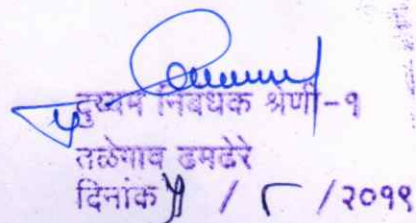 दुय्यम निबंधक श्रेणी-१
तळेगाव ढमढेरे
दिनांक / ८ / २०१९